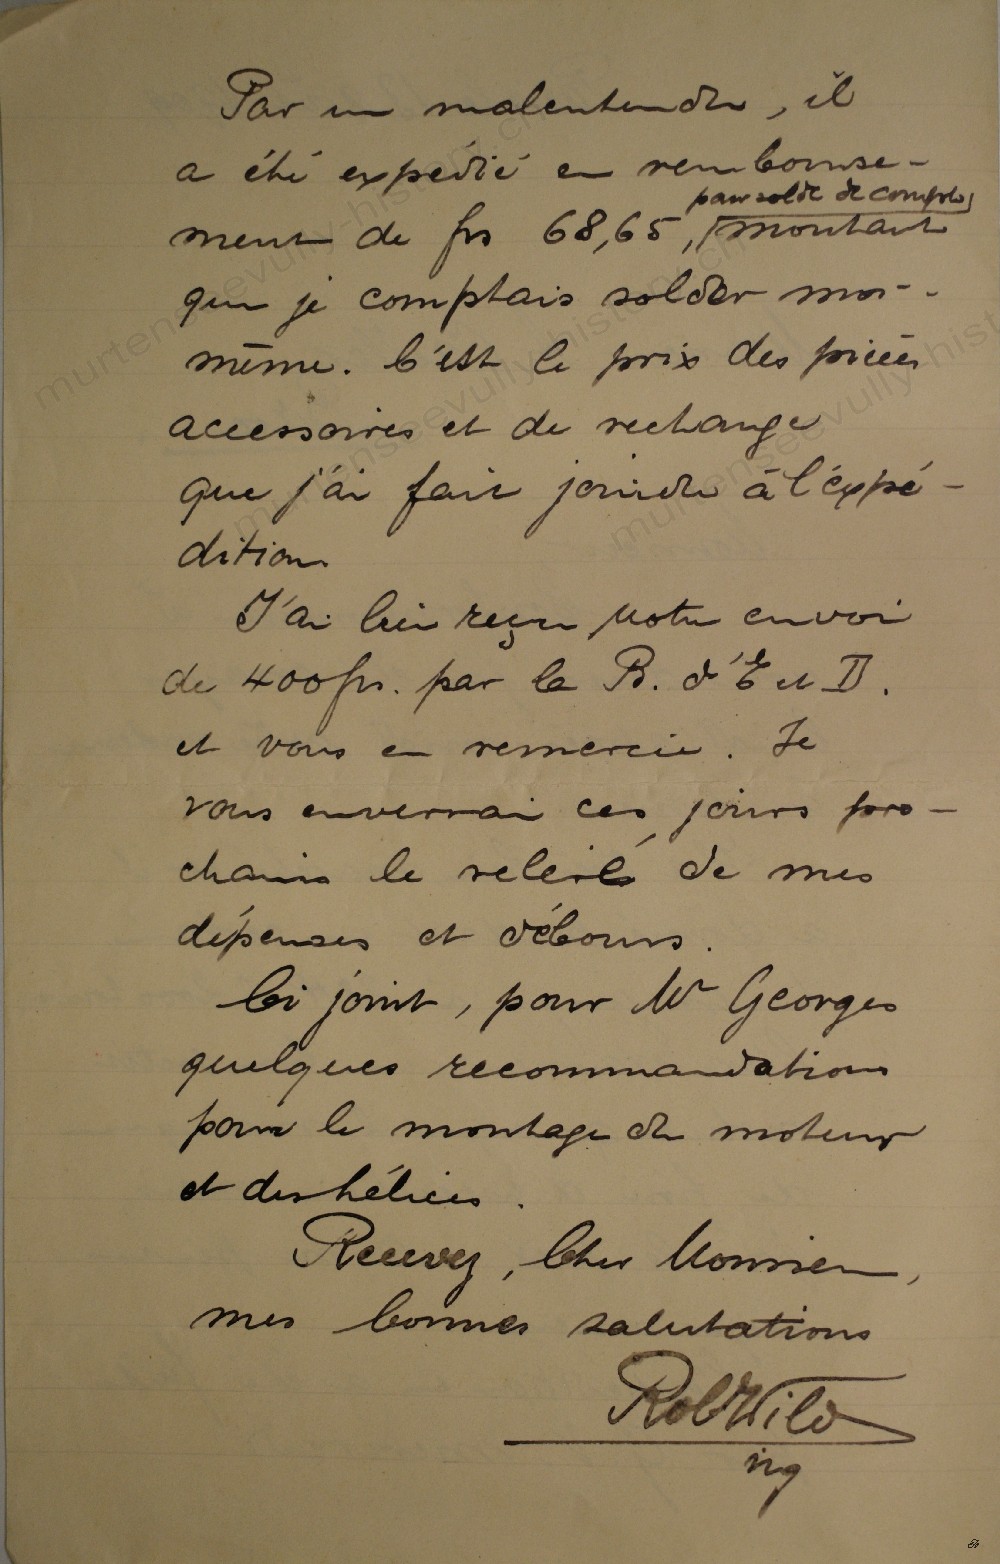 Par un malentendu, il
a été expédié en rembourse-
pour solde de compte
ment de frs 68,65, montant
que je comptais solder moi-
même. C'est le prix des pièces
accessoires et de rechange
que j'ai fait joindre à l'éxpé-
dition
J'ai bien reçu votre envoi
de 400 frs. par la B. d'E et D.
et vous en remercie. Je
vous enverrai ces jours pro-
chains le relevé de mes
dépenses et débours.
Ci joint, pour Mr Georges
quelques recommandations
pour le montage du moteur
et des hélices.
Recevez, Cher Monsieur,
mes bonnes salutations
Rob Wild
ing
murtenseevully-history.ch
murtenseevully-history.ch
murtenseevully-hist